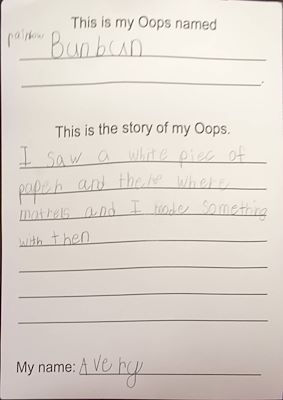 This is my Oops named
painbow Bunbun
This is the story of my Oops.
I saw a white piec of
papen and there where
matrels and I made Something
with then
My name: Avery